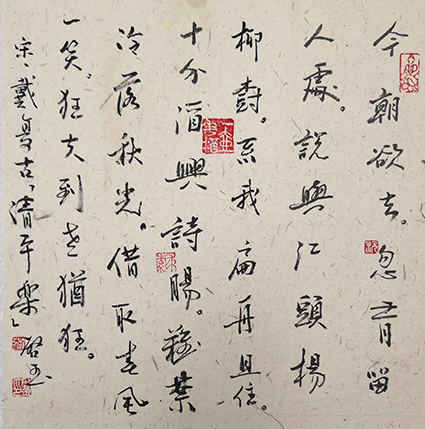 今朝欲去。忽有留
人處。說與江頭楊
柳樹。系我扁舟且住。
十分酒興詩腸。難禁
冷落秋光。借取春風
一笑。狂夫到老猶狂。
宋、戴复古、清平樂、